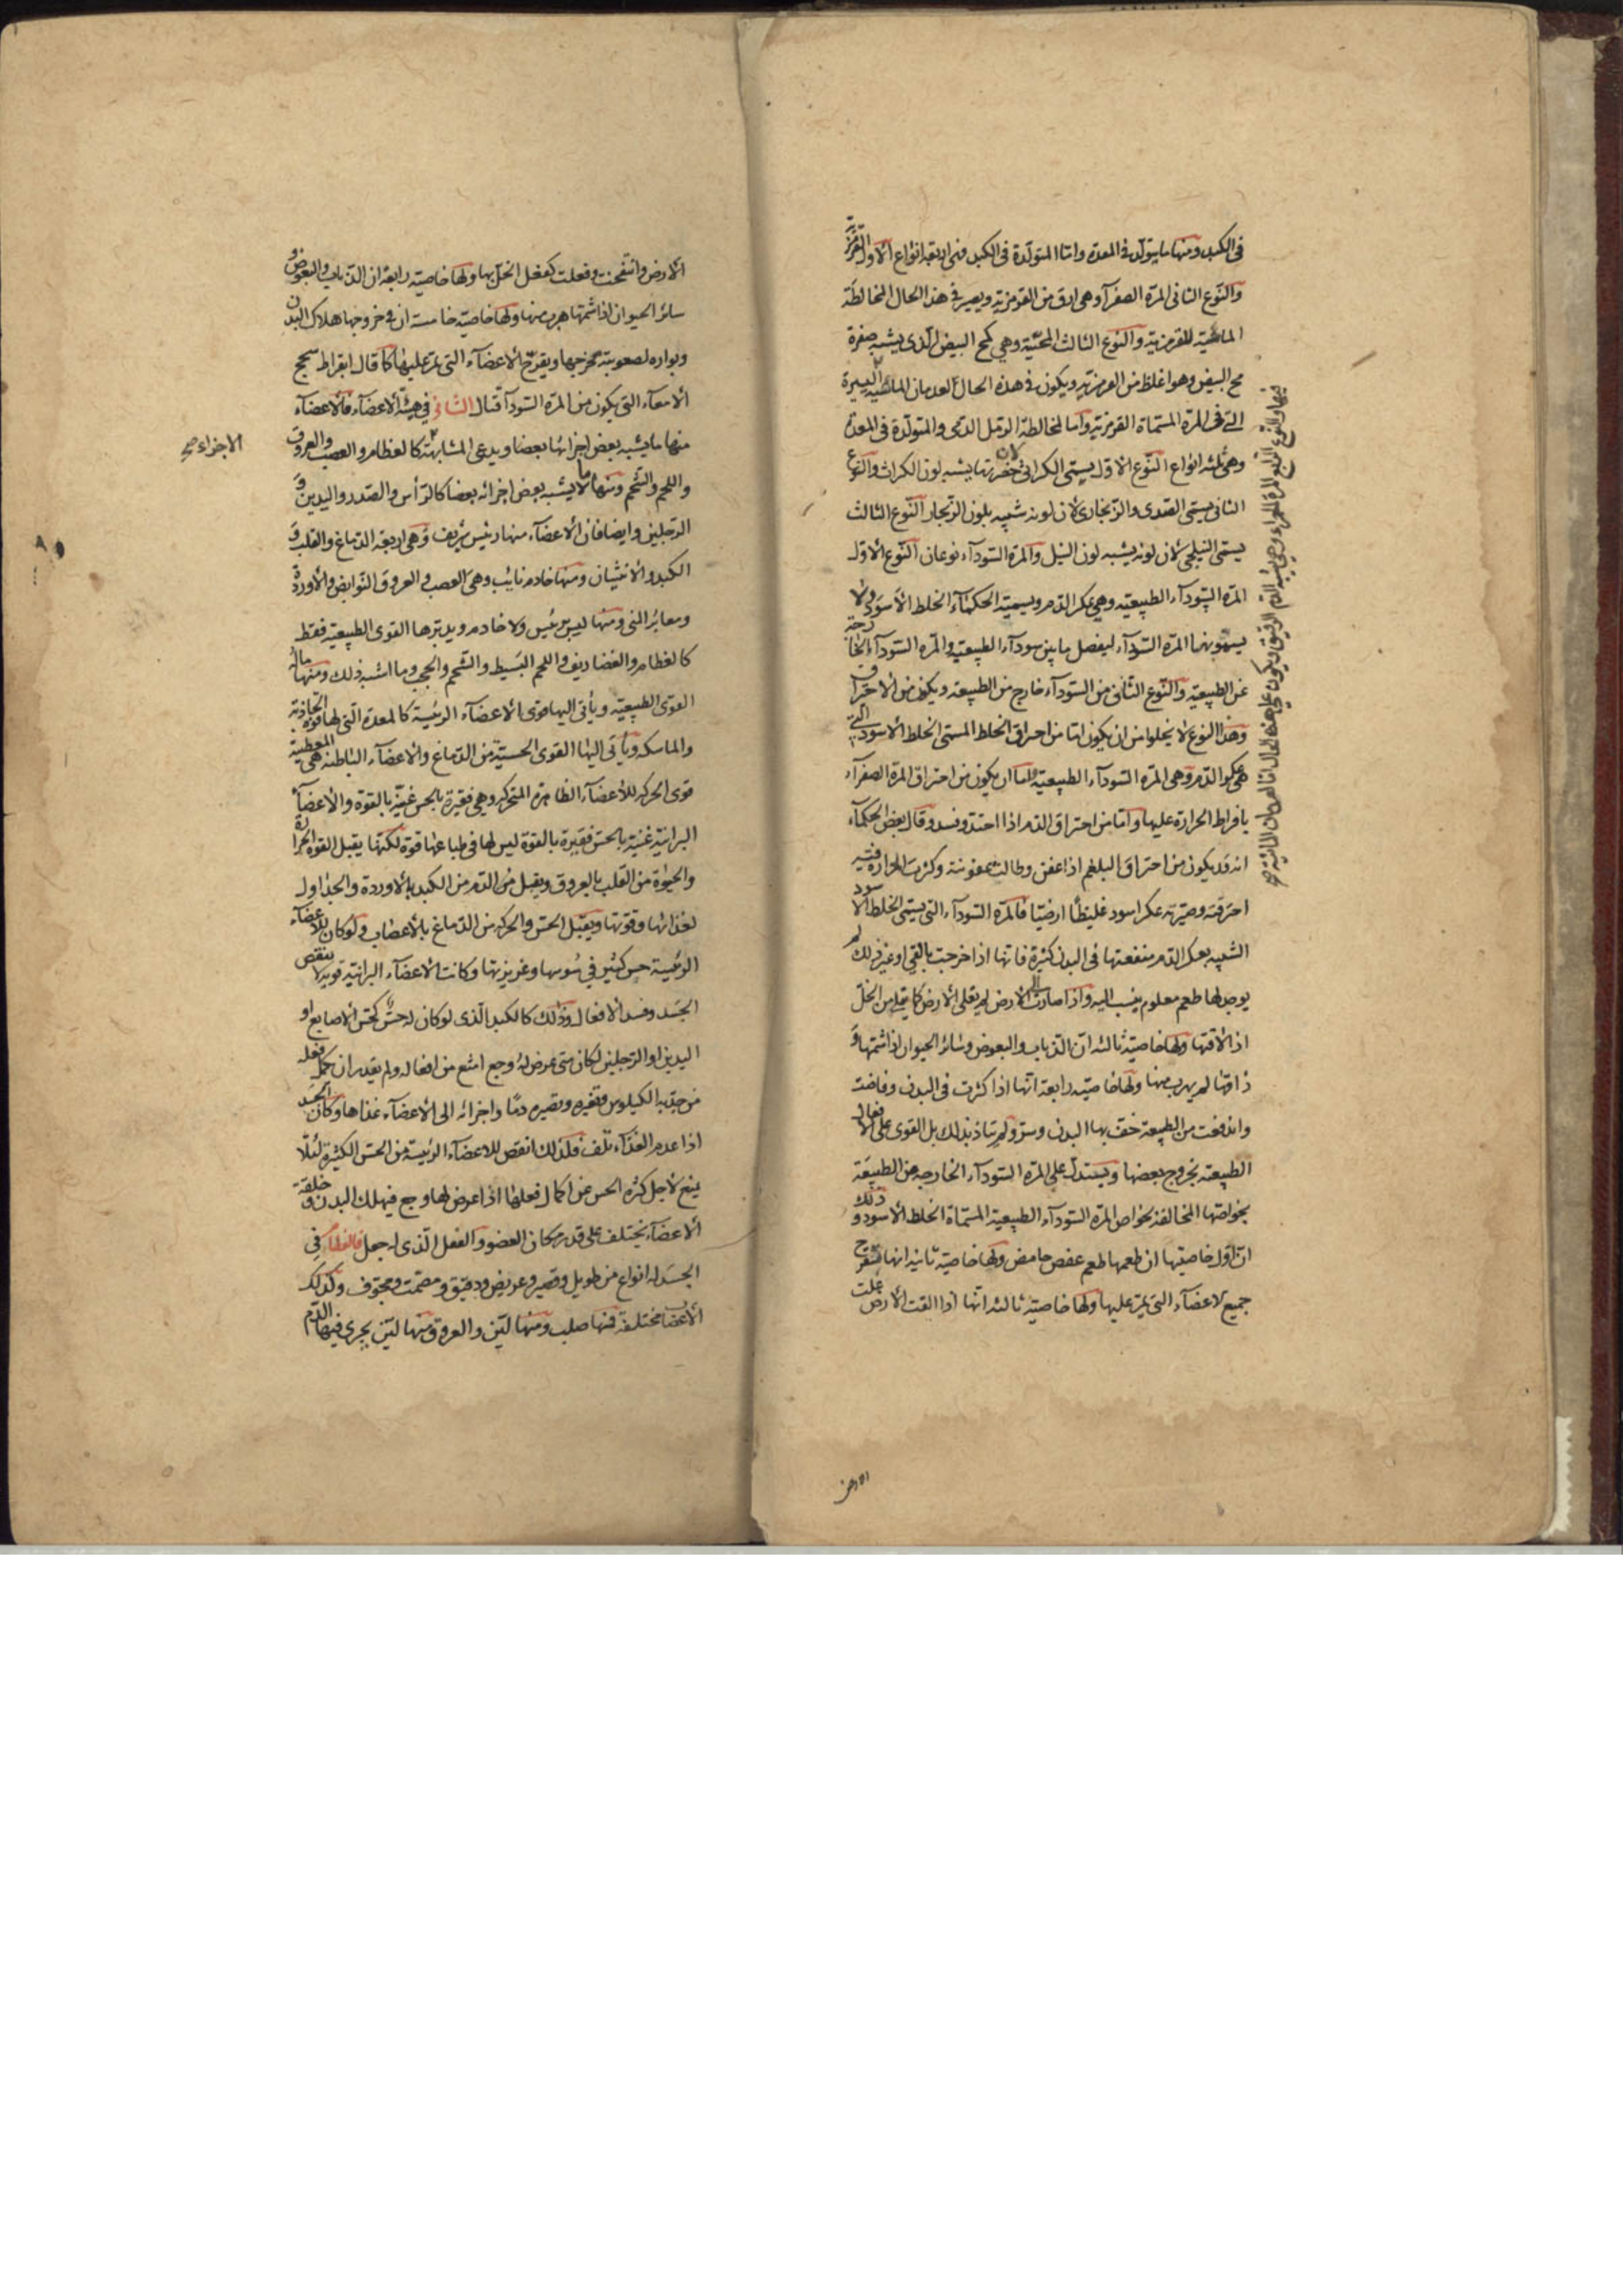 في الكبد ومنها ما يتولد في المعدة واما المتولدة في الكبد فهي اربعة انواع الاول القرمزية
والنوع الثاني المرة الصفرآء وهي ارق من القرمزية ويصير في هذا الحال المخالطة
المائية للقرمزية والنوع الثالث المحيّة وهي كمح البيض الذي يشبه صفرة
مح البيض وهو اغلظ من القرمزية ويكون في هذه الحال اليسيرة
التي في المرة المسماة القرمزية واما المتولدة في المعدة
وهي ثلثه انواع النوع الاول يسمى الكراثي لان خضرتها يشبه لون الكراث والنوع
الثاني يسمى الصدى والزنجاري لان لونه شبيه بلون الزنجار النوع الثالث
يسمى النيلجي لان لونه يشبه لون النيل والمرة السودآء نوعان النوع الاول
المرة السودآء الطبيعية وهي عكر الدم ويسميه الحكمآء الخلط الاسود ولا
يسمونها المرة السودآء ليفصل ما بين سودآء الطبيعية والمرة السودآء الخارجة
عن الطبيعية والنوع الثاني من السودآء خارج من الطبيعه ويكون من الاحتراق
وهذا النوع لا يخلوا من ان يكون اما من احراق الخلط المسمى الخلط الاسود التي
هي عكر الدم وهي المرة السودآء الطبيعية واما ان يكون من احتراق المرة الصفرآء
بافراط الحرارة عليها واما من احتراق الدم اذا احتد وفسد وقال بعض الحكمآء
انه قد يكون من احتراق البلغم اذا عفن وطالت عفونته وكثرت الحرارة فيه
احرقته وصيرته عكرا اسود غليظا ارضيا فالمرة السودآء التي يسمى الخلط الاسود
الشبيه بعكر الدم منفعتها في البدن كثيرة فانها اذا خرجت بالقي او غير ذلك لم
يوجد لها طعم معلوم ينسب اليه واذا صارت الى الارض لم يغلى الارض كما يغلى من الخل
اذا لاقتها ولها خاصية ثالثه ان الذباب والبعوض وسائر الحيوان اذا شمتها و
ذاقتها لم يهرب منها ولها خاصيه رابعة انها اذا كثرت في البدن وفاضت
واندفعت من الطبيعة خف بها البدن وسر ولم يتاذ بذلك بل القوى على الافعال
الطبيعيه بخروج بعضها ويستدل على المرة السودآء الخارجه من الطبيعة
بخواصها المخالفة لخواص المرة السودآء الطبيعية المسماة الخلط الاسود وذلك
ان اول خاصيتها ان طعمها طعم عفص حامض ولها خاصية ثانيه انها تقرح
جميع الاعضآء التي تمر عليها ولها خاصية ثالثه انها اذا القت الارض غلت
الارض
الارض وانتفخت وفعلت كفعل الخل بها ولها خاصية رابعة ان الذباب والبعوض و
سائر الحيوان اذا شمتها هرب منها ولها خاصية خامسة ان في خروجها هلاك البدن
وبواره لصعوبة مخرجها ويقرح الاعضآء التي تمر عليها كما قال ابقراط سحج
الامعآء التي يكون من المرة السودآء قتال الثاني في هيئة الاعضآء فالاعضآء
منها ما يشبه بعض اجزائها بعضا ويدعى المشابهة كالعظام والعصب والعروق
الاجزاء صح
واللحم والشحم ومنها ما لا يشبه بعض اجزائه بعضا كالرأس والصدر واليدين و
الرجلين وايضا فان الاعضآء منها رئيس شريف وهي اربعة الدماغ والقلب و
الكبد والانثيان ومنها خادم نايب وهي العصب والعروق النوابض والاوردة
ومعابر المني ومنها ليس برئيس ولا خادم ويدبرها القوى الطبيعية فقط
كالعظام والغضاريف واللحم البسيط والشحم والحجب وما اشبه ذلك ومنها ماله
القوى الطبيعية ويأتي اليها قوى الاعضآء الرئيسة كالمعدة التي لها قوة الجاذبة
والماسكه ويأتي اليها القوى الحسية من الدماغ والاعضآء الباطنه هي المعطية
قوى الحركة للاعضآء الظاهرة المتحركه وهي فقيرة بالحس غنية بالقوة والاعضآء
البرانية غنية بالحس فقيرة بالقوة ليس لها في طباعها قوة لكنها يقبل القوة الحرارة
والحيوة من القلب بالعروق ويقبل من الدم من الكبد بالاوردة والجداول
لغذائها وقوتها ويقبل الحس والحركه من الدماغ بالاعصاب ولو كان للاعضآء
الرئيسة حس كثير في سوسها وغريزتها وكانت الاعضآء البرانية قوية لا ينقص
الجسد وفسد الافعال وذلك كالكبد الذي لو كان له حس كحس الاصابع او
اليدين او الرجلين لكان متى عرض له وجع امتنع من افعاله ولم يقدر ان يكمل فعله
من جذبه الكيلوس وتغيره وتصييره دما واجرائه الى الاعضآء غذاها وكان الجسد
اذا عدم الغذآء تلف فلذلك انقص للاعضآء الرئيسة من الحس الكثيرة لئلا
يمنع لاجل كثرة الحس من اكمال فعلها اذا عرض لها وجع فيهلك البدن و خلقة
الاعضآء يختلف على قدر مكان العضو والفعل الذي له جعل فالعظام في
الجسد له انواع من طويل وقصير وعريض ودقيق ومصمت ومجوف وكذلك
الاعضا مختلفة فمنها صلب ومنها لين والعروق منها لين يجري فيها الدم